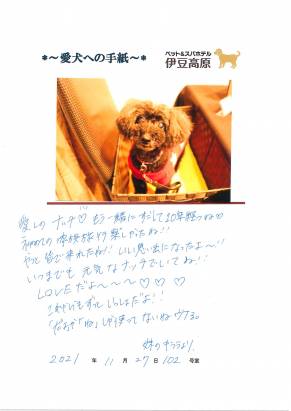 *～愛犬への手紙～*
ペット&スパホテル
伊豆高原
愛しの ナッチ♡ もう一緒にすごして10年経つね♡
初めての 旅行 楽しかたね!!
やっと 皆で来れたね!! いい思い出になったよ～!!
いつまでも 元気なナッチでいてね!!
LOVEだよ～～～♡ ♡ ♡
これからもずっといっしょだよ!
「だよ」「ね」しか使ってないね ウケる。
妹のキララより
2021 年 11 月 27 日 102 号室